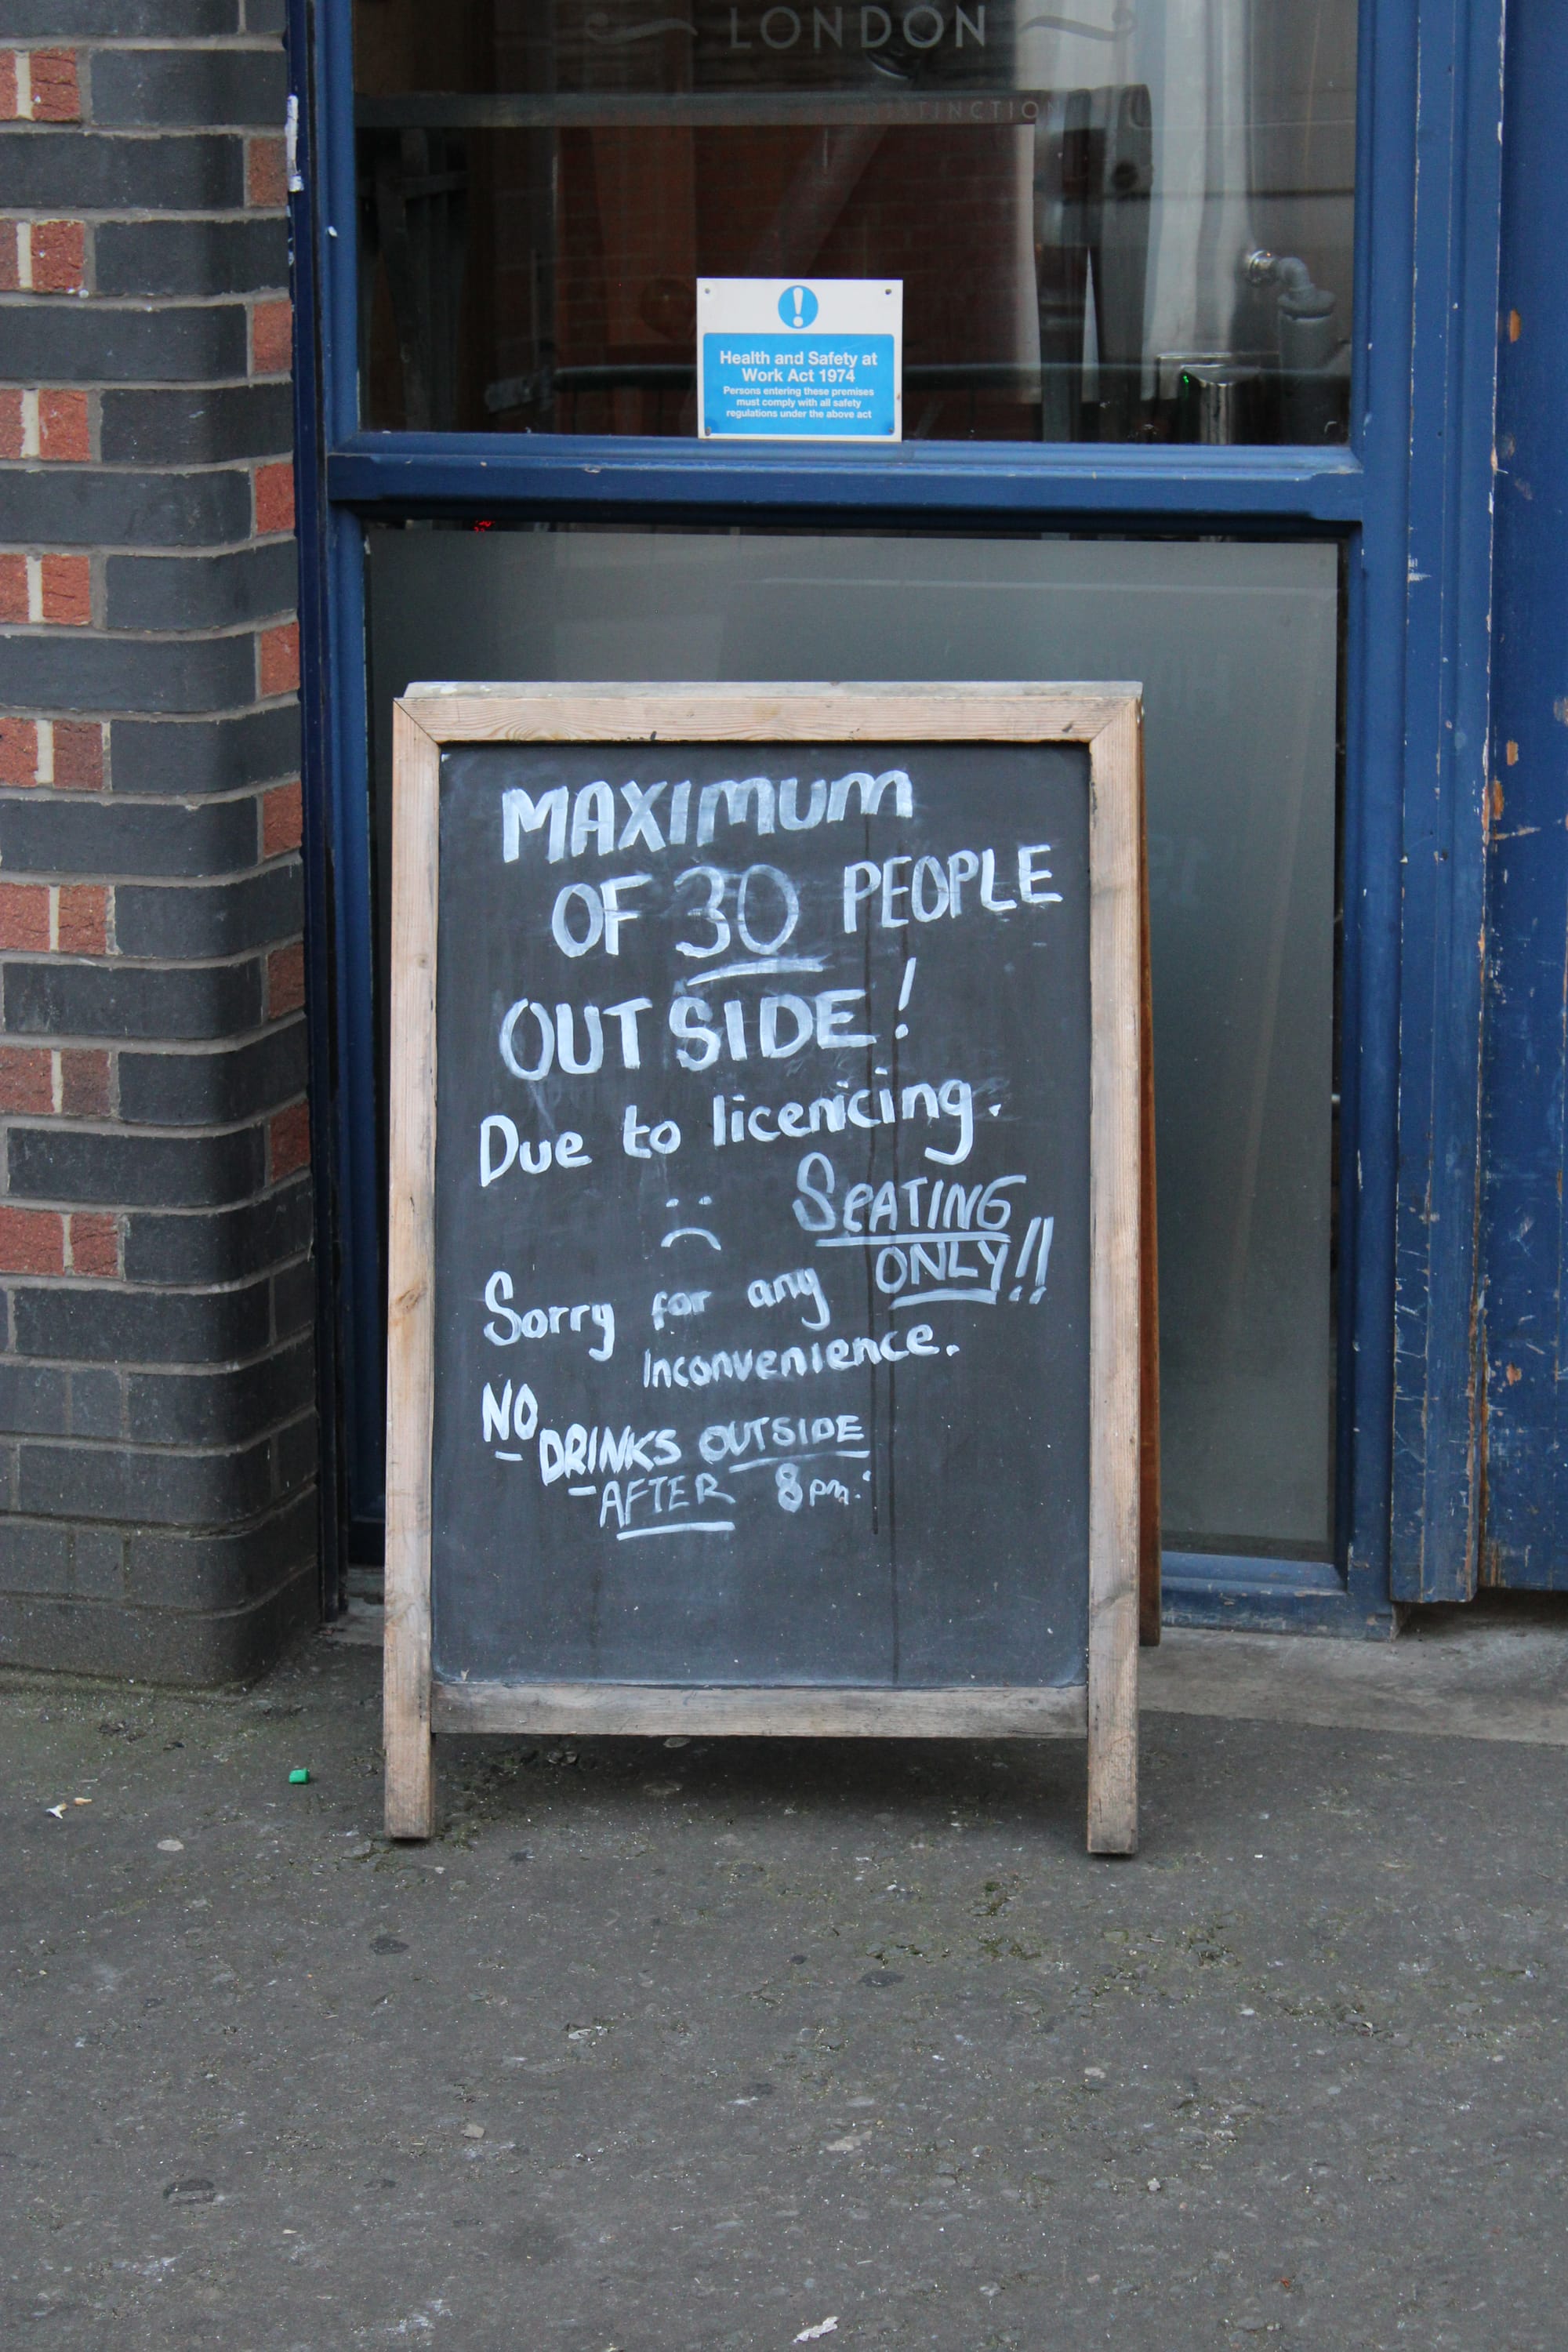 LONDON
DISTINCTION
!
Health and Safety at
Work Act 1974
Persons entering these premises
must comply with all safety
regulations under the above act
MAXIMUM
OF 30 PEOPLE
OUTSIDE!
Due to licenicing.
SEATING
ONLY!!
Sorry for any
inconvenience.
NO
DRINKS OUTSIDE
AFTER 8pm.